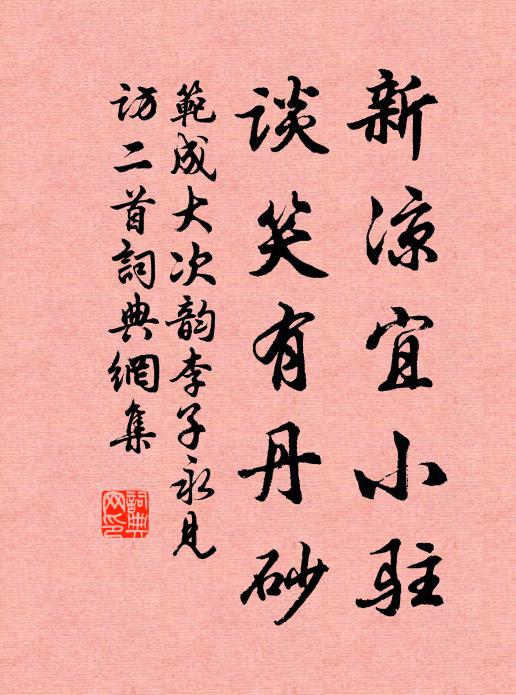 新凉宜小驻
谈笑有丹砂
範成大次韵李子永見
訪二首詞典網集
詞典
网印